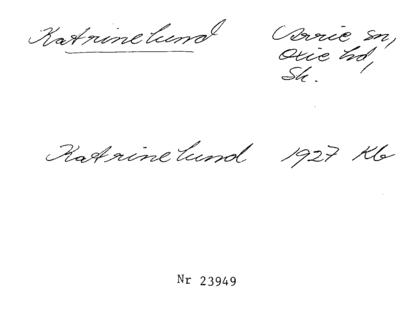 Katrinelund Arrie sn,
Oxie hd,
Sk.
Katrinelund 1927 Kb
Nr 23949